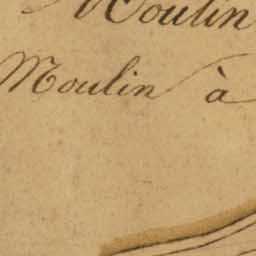 Moulin
Moulin à